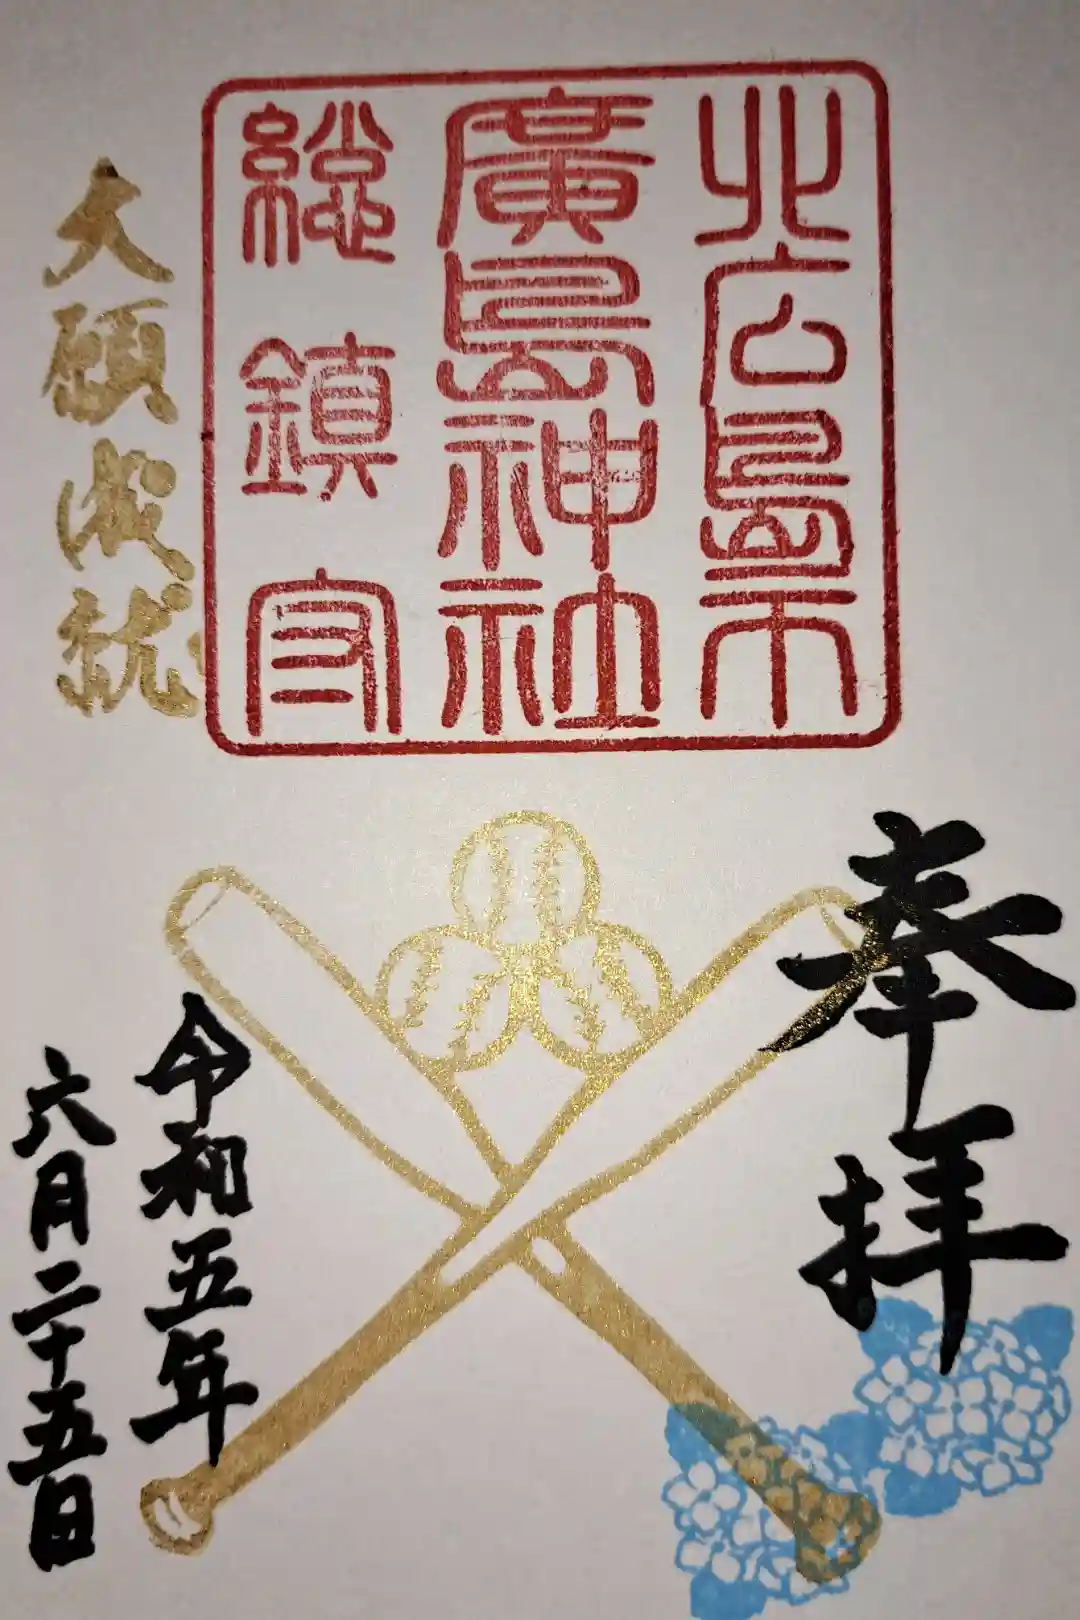 奉拝
北広島市
廣島神社
総鎮守
大願成就
令和五年
六月二十五日